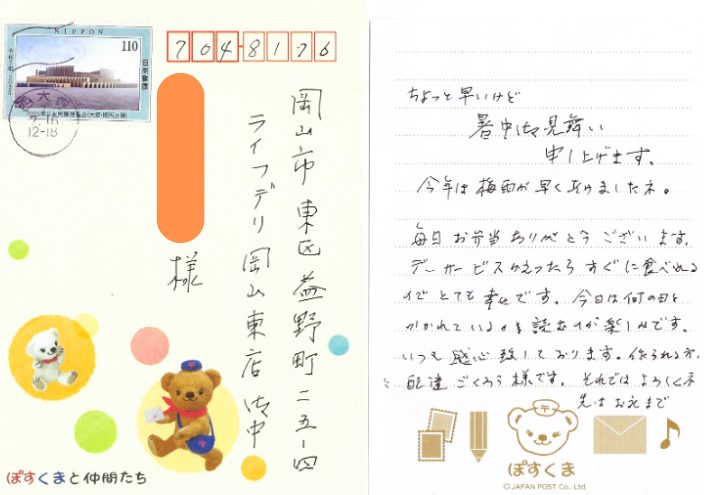 NIPPON
110
日本郵便
704-8176
岡山市東区益野町二五-四
ライフデリ岡山東店 御中
様
12-18
ぽすくまと仲間たち
ちょっと早いけど
暑中御見舞い
申し上げます。
今年は梅雨が早く あけましたネ。
毎日 お弁当 ありがとう ございます。
デーサービス かえったら すぐに食べれる
ので とても 幸せです。今日は何の日と
かかれているのを 読むのが楽しみです。
いつも 感心致しております。作られる方、
配達 ごくろう様です。それでは よろしくネ
先は お礼まで
ぽすくま
© JAPAN POST Co., Ltd.